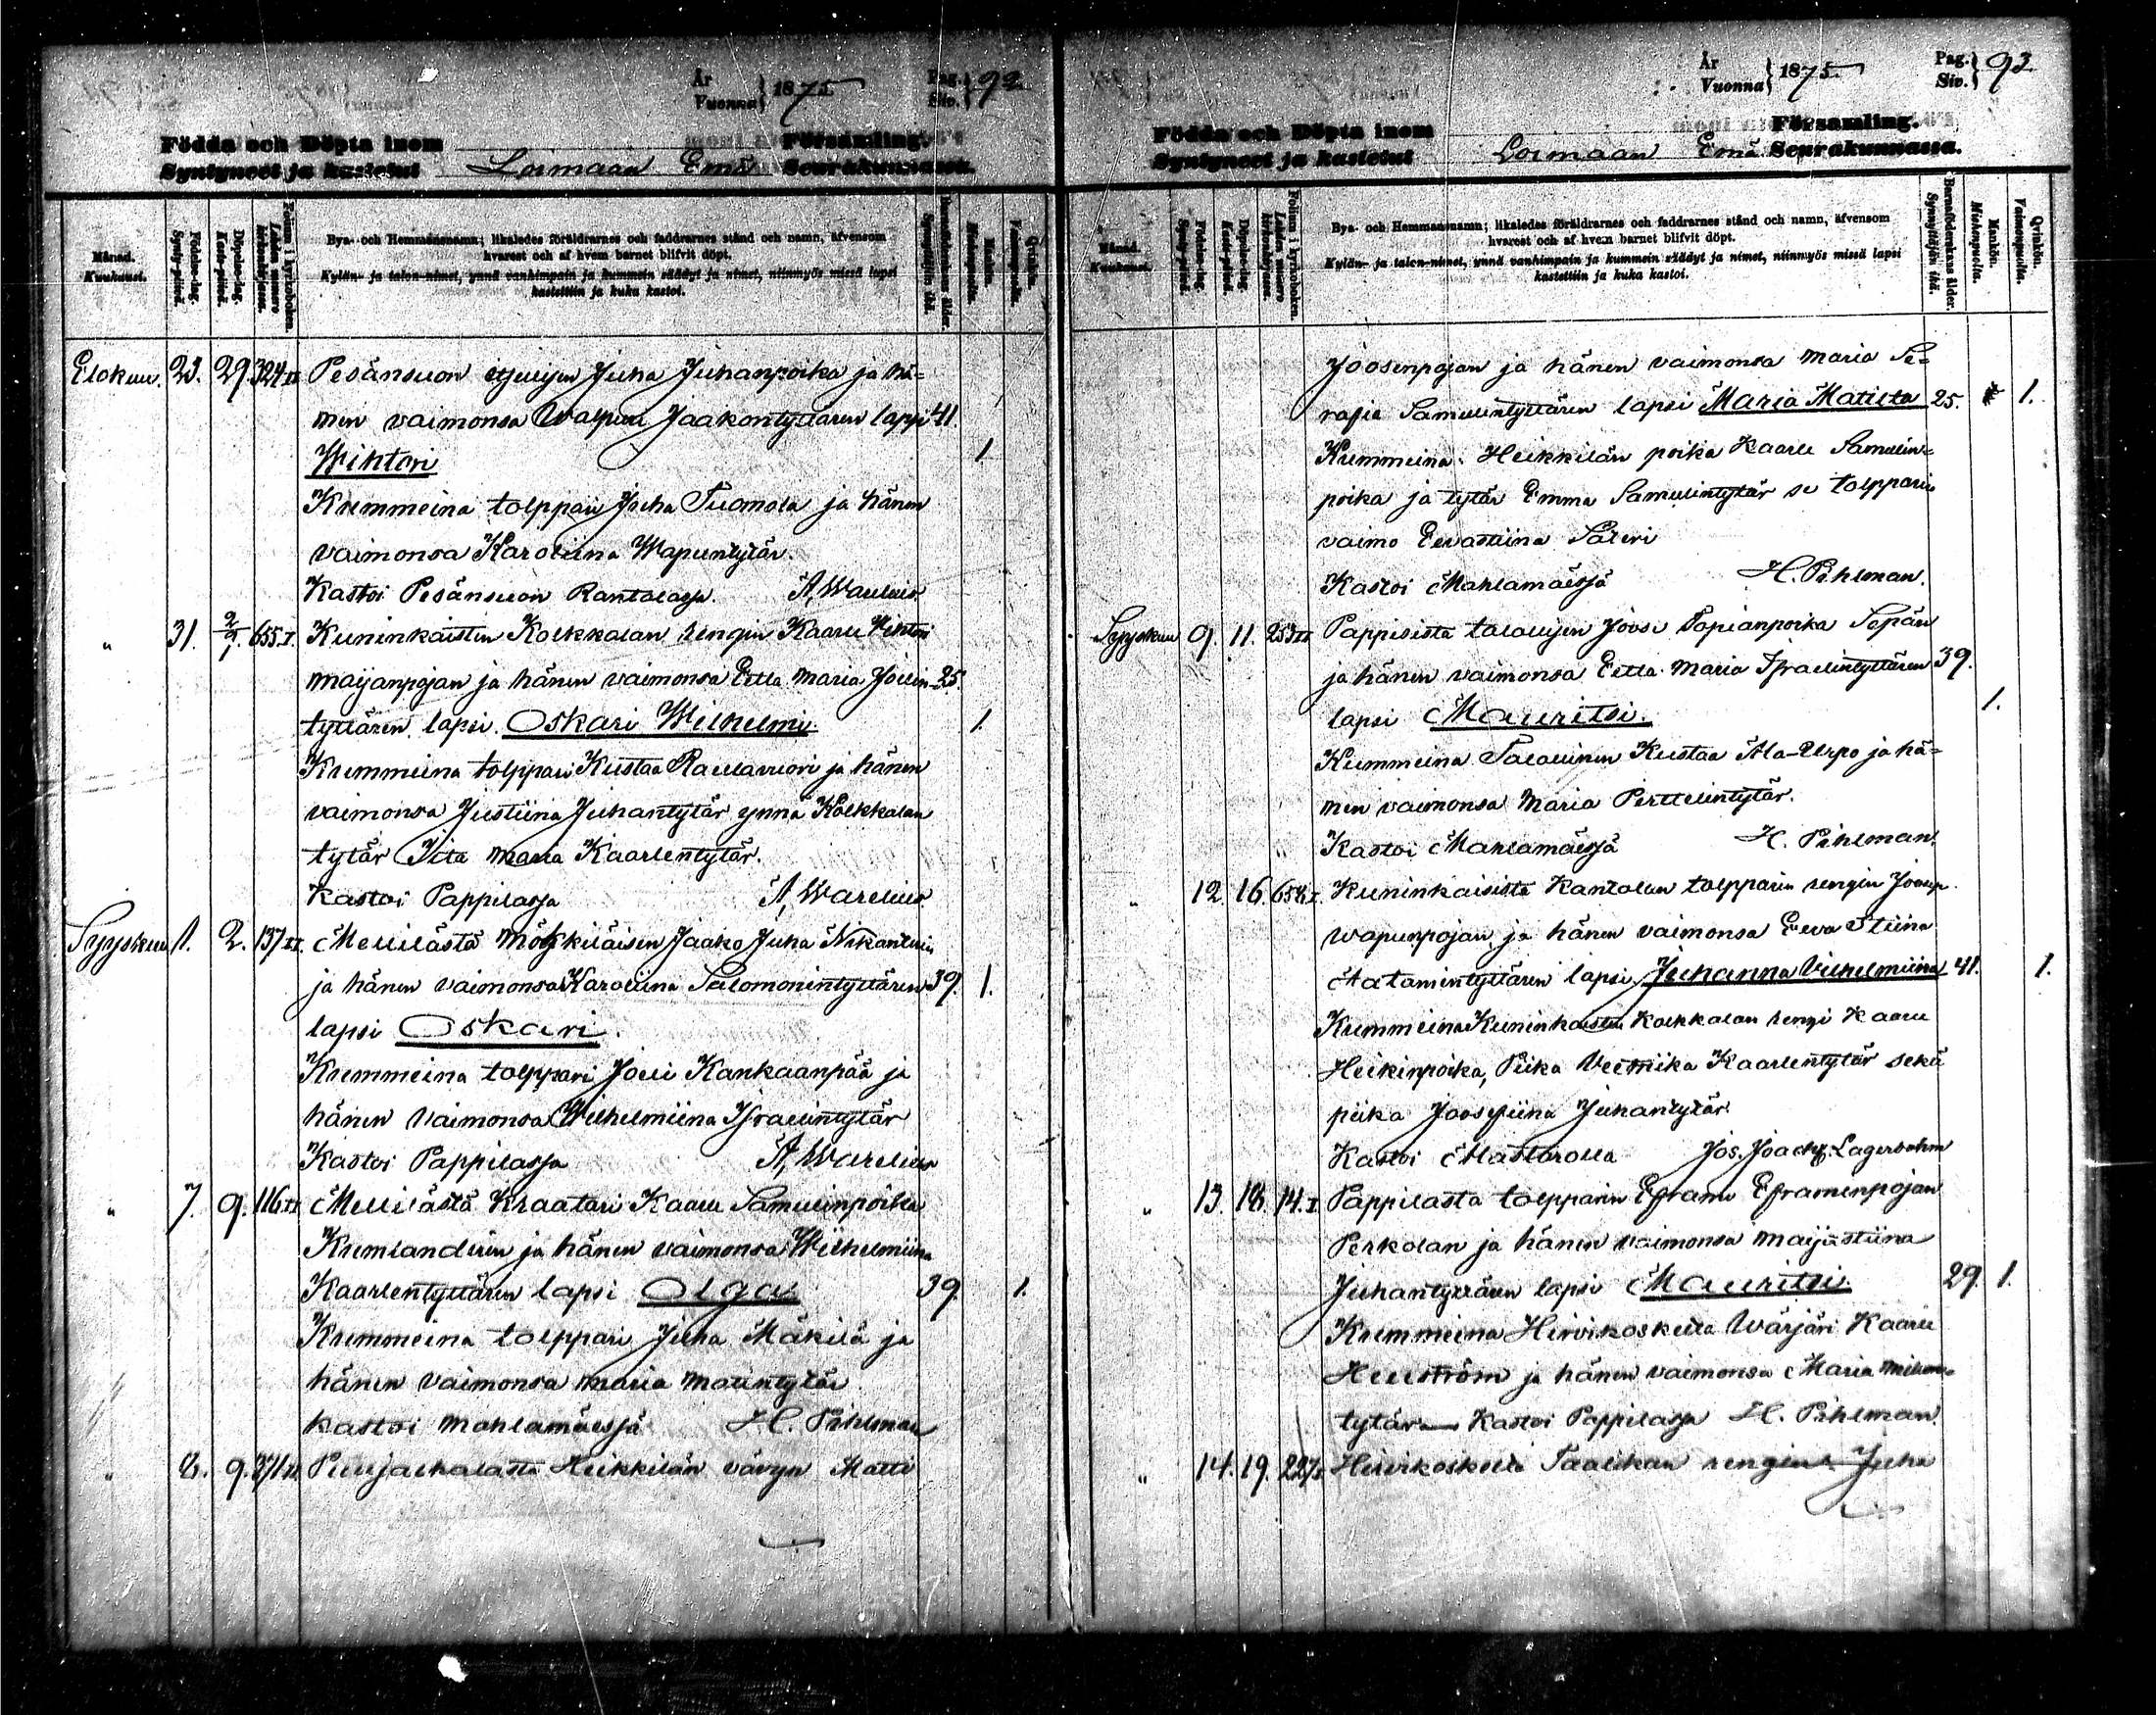 År
Vuonna } 1875
Pag.
Siv. } 92
Födda och Döpta inom Församling.
Syntyneet ja kastetut Loimaan Emä Seurakunnassa.
Månad. Kuukausi.
Födelse-dag. Synty-päivä.
Döpelse-dag. Kaste-päivä.
Folium i kyrkoboken. Lehden numero kirkonkirjassa.
Bya- och Hemmansnamn; likaledes föräldrarnes och faddrarnes stånd och namn, äfvensom
hvarest och af hvem barnet blifvit döpt.
Kylän- ja talon-nimet, ynnä vanhimpain ja kummein säädyt ja nimet, niinmyös missä lapsi
kastettiin ja kuka kastoi.
Barnaföderskans ålder. Synnyttäjän ikä.
Mankön. Miehenpuolta.
Qvinkön. Vaimonpuolta.
Elokuu. 23. 29. 324 II Pesänsuon itsellisen Juha Juhanpoika ja hä-
nen vaimonsa Walpuri Jaakontyttären lapsi 41.
Wihtori 1
Kummeina tolppari Juha Tuomola ja hänen
vaimonsa Karoliina Wapuntytär
Kastoi Pesänsuon Rantalassa. A. Warelius.
" 31. 2/9. 655 I. Kuninkaisten Kolkkalan rengin Kaarle Wihtori
Maijanpojan ja hänen vaimonsa Eetla Maria Joelin- 25.
tyttären lapsi Oskari Wilhelmi 1.
Kummeina tolppari Kustaa Raulavuori ja hänen
vaimonsa Justiina Juhantytär ynnä Kolkkalan
tytär Iita Maria Kaarlentytär.
Kastoi Pappilassa A. Warelius.
Syyskuu 1. 2. 137 II. Mellilästä Jaako Juha
ja hänen vaimonsa Karoliina Salomonintyttären 39. 1.
lapsi Oskari.
Kummeina tolppari Joeli Kankaanpää ja
hänen vaimonsa Wilhelmiina Israelintytär
Kastoi Pappilassa A. Warelius
" 7. 9. 116 II Mellilästä Kraatari Kaarle Samulinpoika
Krumlanderin ja hänen vaimonsa Wilhelmiina
Kaarlentyttären lapsi Olga 39. 1.
Kummeina tolppari Juha Mäkilä ja
hänen vaimonsa Maria Matintytär
kastoi Mahlamäessä H. Pihlman
" 8. 9. 271 II Puujalkalasta Heikkilän vävyn Matti
År
Vuonna } 1875
Pag.
Siv. } 93
Födda och Döpta inom Församling.
Syntyneet ja kastetut Loimaan Emä Seurakunnassa.
Månad. Kuukausi.
Födelse-dag. Synty-päivä.
Döpelse-dag. Kaste-päivä.
Folium i kyrkoboken. Lehden numero kirkonkirjassa.
Bya- och Hemmansnamn; likaledes föräldrarnes och faddrarnes stånd och namn, äfvensom
hvarest och af hvem barnet blifvit döpt.
Kylän- ja talon-nimet, ynnä vanhimpain ja kummein säädyt ja nimet, niinmyös missä lapsi
kastettiin ja kuka kastoi.
Barnaföderskans ålder. Synnyttäjän ikä.
Mankön. Miehenpuolta.
Qvinkön. Vaimonpuolta.
Joosenpojan ja hänen vaimonsa Maria Se-
rafia Samulintyttären lapsi Maria Matilta 25. 1.
Kummeina: Heikkilän poika Kaarle Samulin-
poika ja tytär Emma Samulintytär se tolpparin
vaimo Eevastiina Säteri
Kastoi Mahlamäessä H. Pihlman.
Syyskuu 9. 11. 253 II Pappisista talollisen Joose Topianpoika Sepän
ja hänen vaimonsa Eetla Maria Israelintyttären 39.
lapsi Mauritsi. 1.
Kummeina Talollinen Kustaa Ala-Urpo ja hä-
nen vaimonsa Maria Perttelintytär.
Kastoi Mahlamäessä H. Pihlman.
" 12. 16. I. Kuninkaisista Kantolan tolpparin rengin Joosep
Wapunpojan ja hänen vaimonsa Eeva Stiina
Aatamintyttären lapsi Juhanna Vilhelmiina 41. 1.
Kummeina Kuninkaisten Kolkkalan rengi Kaarle
Heikinpoika, Piika Veermika Kaarlentytär sekä
piika Joosefiina Juhantytär
Kastoi Jos. Joach. Lagerbohm
" 13. 18. 14. I Pappilasta tolpparin Eframi Eframinpojan
Perkolan ja hänen vaimonsa Maijastiina
Juhantyttären lapsi Mauritsi. 29. 1.
Kummeina Hirvikoskelta Wärjäri Kaarle
Hellström ja hänen vaimonsa Maria
tytär — Kastoi Pappilassa H. Pihlman.
" 14. 19. Hirvikoskelta Taalikan rengin Juha